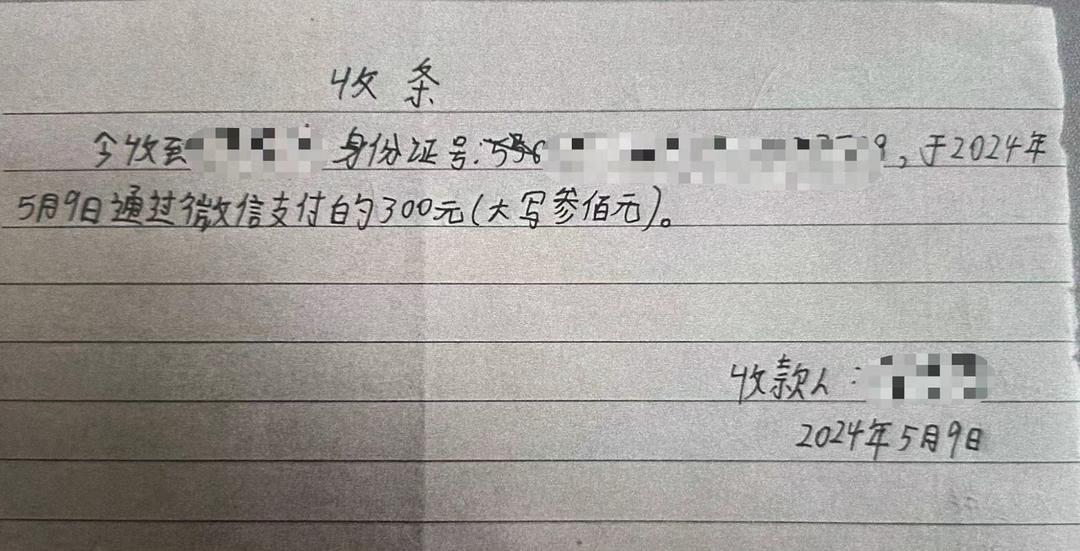 收条
今收到 身份证号: 9,于2024年
5月9日通过微信支付的300元(大写叁佰元)。
收款人:
2024年5月9日